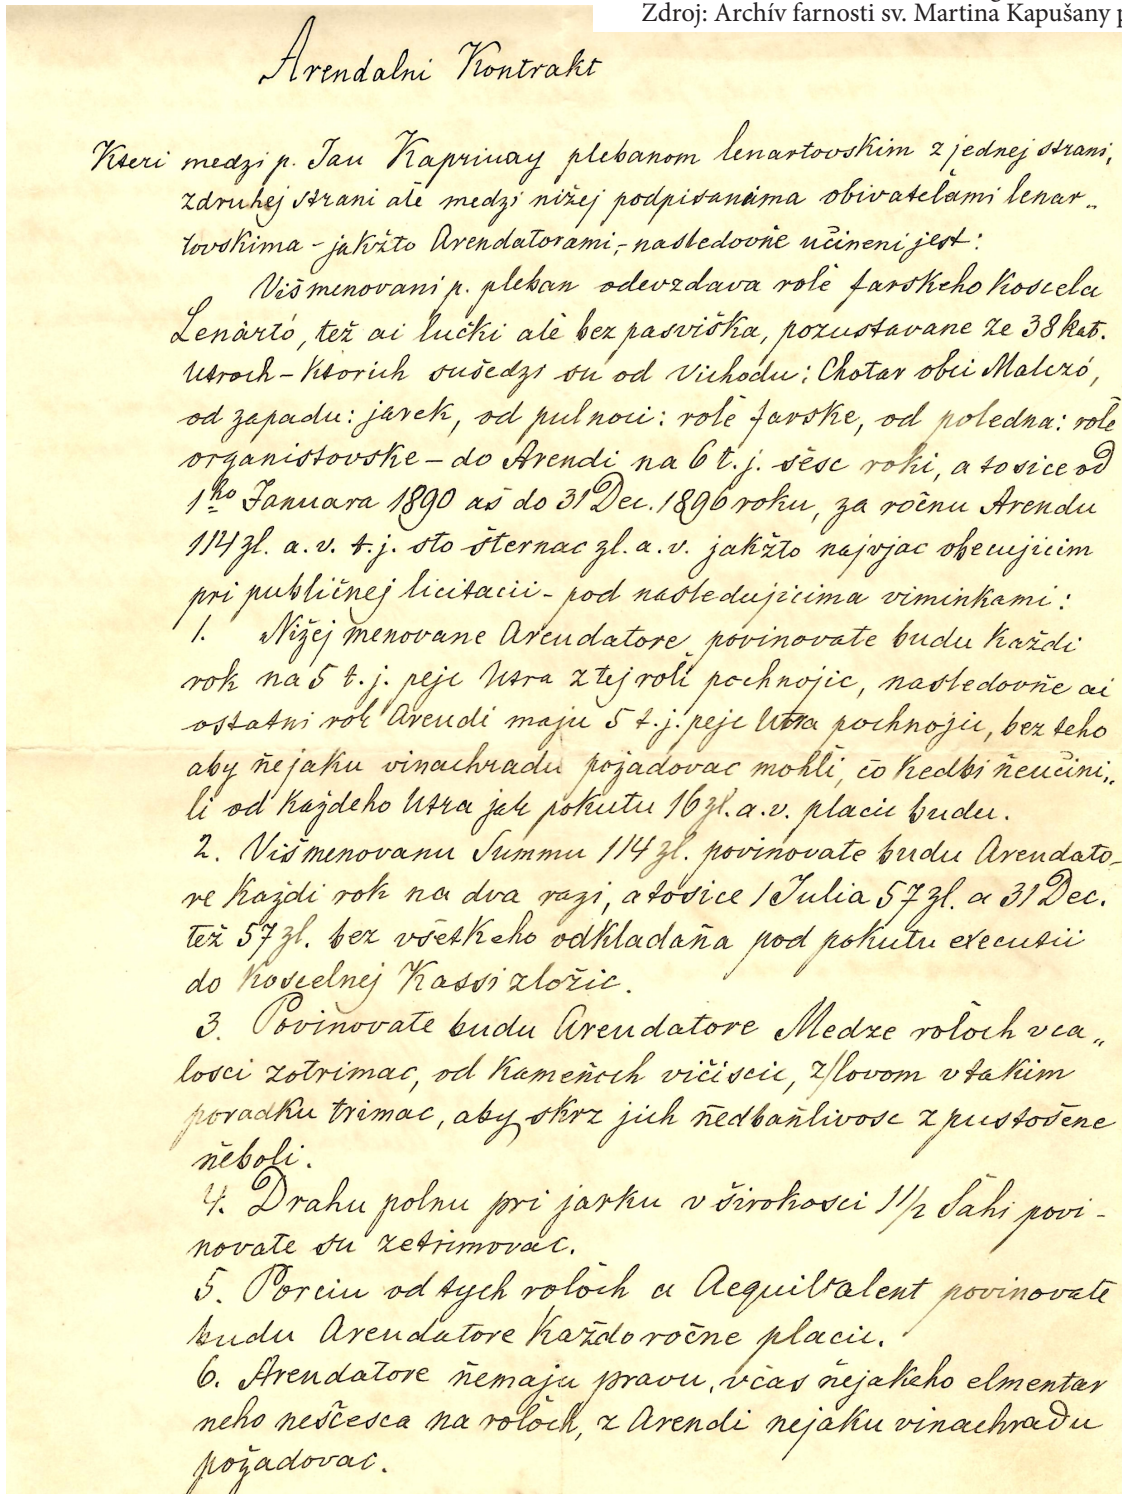 Zdroj: Archív farnosti sv. Martina Kapušany p
Arendalni Kontrakt
Kteri medzi p. Jan Kaprinay plebanom lenartovskim z jednej strani,
zdruhej strani ale medzi nižej podpisanima obivatelami lenar„
tovskima - jakžto Arendatorami,- nasledovňe učineni jest:
Višmenovani p. pleban odevzdava role farskeho Koscela
Lenártó, tež ai lučki ale bez pasviška, pozustavane ze 38 kat.
Utroch - Ktorich sušedzi su od Vichodu: Chotar obci Malczó,
od zapadu: jarek, od pulnoci: role farske, od poledna: role
organistovske - do Arendi na 6 t. j. šesc roki, a tosice od
1ho Januara 1890 aš do 31 Dec. 1896 roku, za ročnu Arendu
114 zl. a. v. t. j. sto šternac zl. a. v. jakžto najvjac obecujicim
pri publičnej licitacii - pod nasledujicima viminkami:
1. Nižej menovane Arendatore povinovate budu Každi
rok na 5 t. j. pejc Utra z tej roli pochnojic, nasledovňe ai
ostatni rok Arendi maju 5 t. j. pejc Utra pochnojic, bez teho
aby ňejaku vinachradu požadovac mohli, čo Kedbi ňeučini„
li od Každeho Utra jak pokutu 16 zl. a. v. placic budu.
2. Višmenovanu Summu 114 zl. povinovate budu Arendato-
re Každi rok na dva razi, a tosice 1 Julia 57 zl. a 31 Dec.
tež 57 zl. bez všetkeho odkladaňa pod pokutu executii
do Koscelnej Kassi zložic.
3. Povinovate budu Arendatore Medze roloch vca„
losci zotrimac, od Kameňoch vičiscic, zlovom v takim
poradku trimac, aby skrz jich ňedbaňlivosc z pustošene
ňeboli.
4. Drahu polnu pri jarku v širokosci 1 1/2 Šahi povi-
novate su zetrimovac.
5. Porciu od tych roloch a Aequivalent povinovate
budu Arendatore Každoročne placic.
6. Arendatore ňemaju pravu, včas ňejakeho elmentar
neho neščesca na roloch, z Arendi nejaku vinachradu
požadovac.